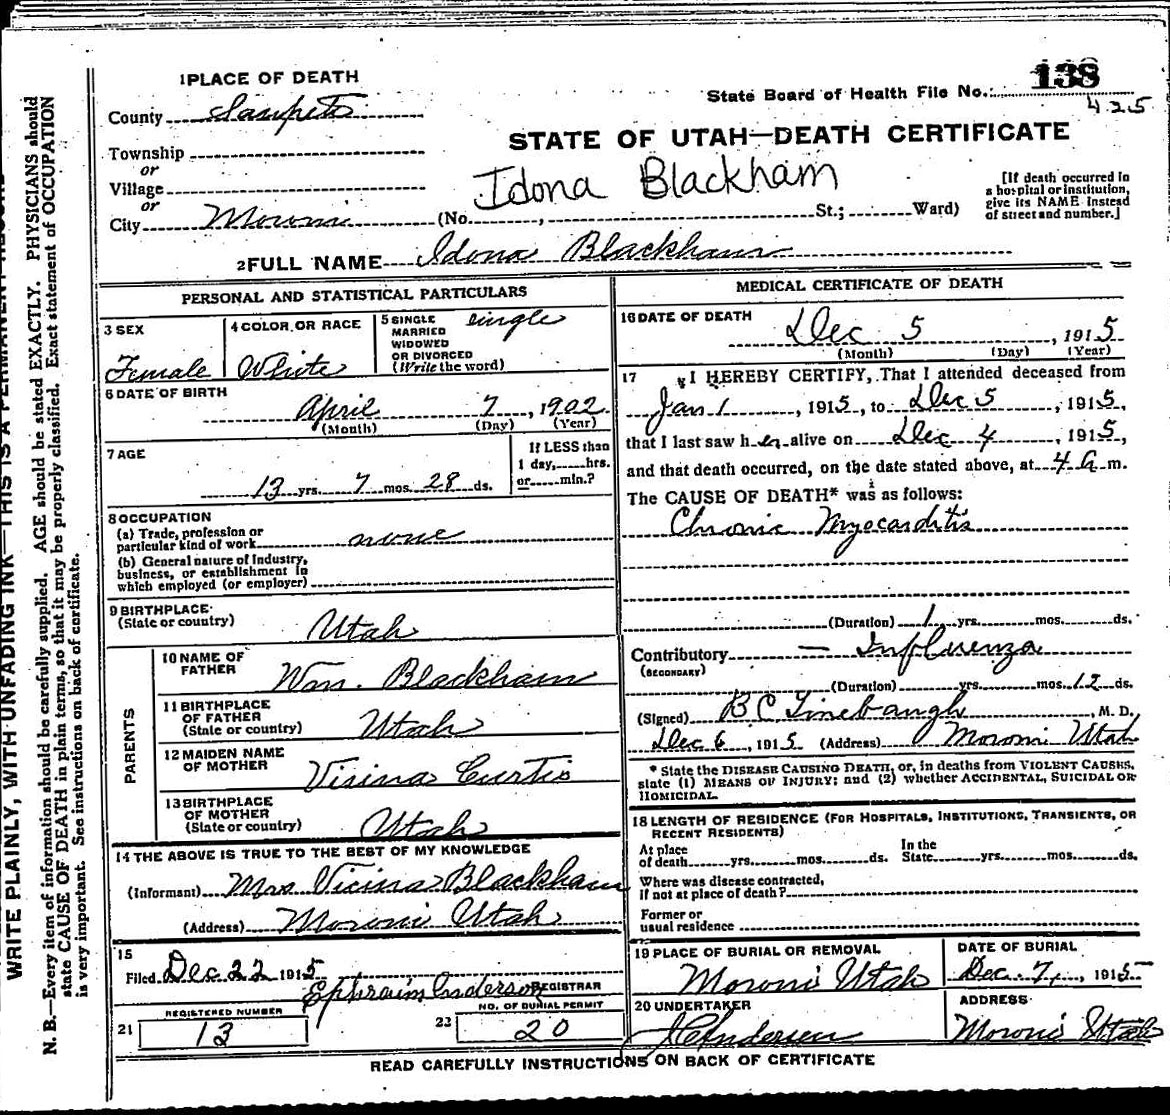 1 PLACE OF DEATH
County Sanpete
Township
or
Village
or
City Moroni (No. , St.; Ward)
State Board of Health File No. 138
425
STATE OF UTAH—DEATH CERTIFICATE
Idona Blackham
[If death occurred in
a hospital or institution,
give its NAME instead
of street and number.]
2 FULL NAME Idona Blackham
PERSONAL AND STATISTICAL PARTICULARS
3 SEX
Female
4 COLOR OR RACE
White
5 SINGLE
MARRIED
WIDOWED
OR DIVORCED
(Write the word)
single
6 DATE OF BIRTH
April 7, 1902
(Month) (Day) (Year)
7 AGE
13 yrs. 7 mos. 28 ds.
If LESS than
1 day, hrs.
or min.?
8 OCCUPATION
(a) Trade, profession or
particular kind of work none
(b) General nature of Industry,
business, or establishment in
which employed (or employer)
9 BIRTHPLACE
(State or country)
Utah
PARENTS
10 NAME OF
FATHER
Wm. Blackham
11 BIRTHPLACE
OF FATHER
(State or country)
Utah
12 MAIDEN NAME
OF MOTHER
Visina Curtis
13 BIRTHPLACE
OF MOTHER
(State or country)
Utah
14 THE ABOVE IS TRUE TO THE BEST OF MY KNOWLEDGE
(Informant) Mrs Vicina Blackham
(Address) Moroni Utah
15
Filed Dec 22 1915
Ephraim Anderson REGISTRAR
REGISTERED NUMBER
21 13
NO. OF BURIAL PERMIT
22 20
MEDICAL CERTIFICATE OF DEATH
16 DATE OF DEATH
Dec 5, 1915
(Month) (Day) (Year)
17 I HEREBY CERTIFY, That I attended deceased from
Jan 1, 1915, to Dec 5, 1915,
that I last saw h er alive on Dec 4, 1915,
and that death occurred, on the date stated above, at 4 a m.
The CAUSE OF DEATH* was as follows:
Chronic Myocarditis
(Duration) 1 yrs. mos. ds.
Contributory — Influenza
(SECONDARY)
(Duration) yrs. mos. 12 ds.
(Signed) B C Linebaugh M. D.
Dec 6, 1915 (Address) Moroni Utah
* State the DISEASE CAUSING DEATH, or, in deaths from VIOLENT CAUSES,
state (1) MEANS OF INJURY; and (2) whether ACCIDENTAL, SUICIDAL OR
HOMICIDAL.
18 LENGTH OF RESIDENCE (FOR HOSPITALS, INSTITUTIONS, TRANSIENTS, OR
RECENT RESIDENTS)
At place
of death yrs. mos. ds.
In the
State yrs. mos. ds.
Where was disease contracted,
if not at place of death?
Former or
usual residence
19 PLACE OF BURIAL OR REMOVAL
Moroni Utah
DATE OF BURIAL
Dec. 7, 1915
20 UNDERTAKER
Andersen
ADDRESS
Moroni Utah
READ CAREFULLY INSTRUCTIONS ON BACK OF CERTIFICATE
WRITE PLAINLY, WITH UNFADING INK—THIS IS A PERMANENT RECORD
N. B.—Every item of information should be carefully supplied. AGE should be stated EXACTLY. PHYSICIANS should
state CAUSE OF DEATH in plain terms, so that it may be properly classified. Exact statement of OCCUPATION
is very important. See instructions on back of certificate.